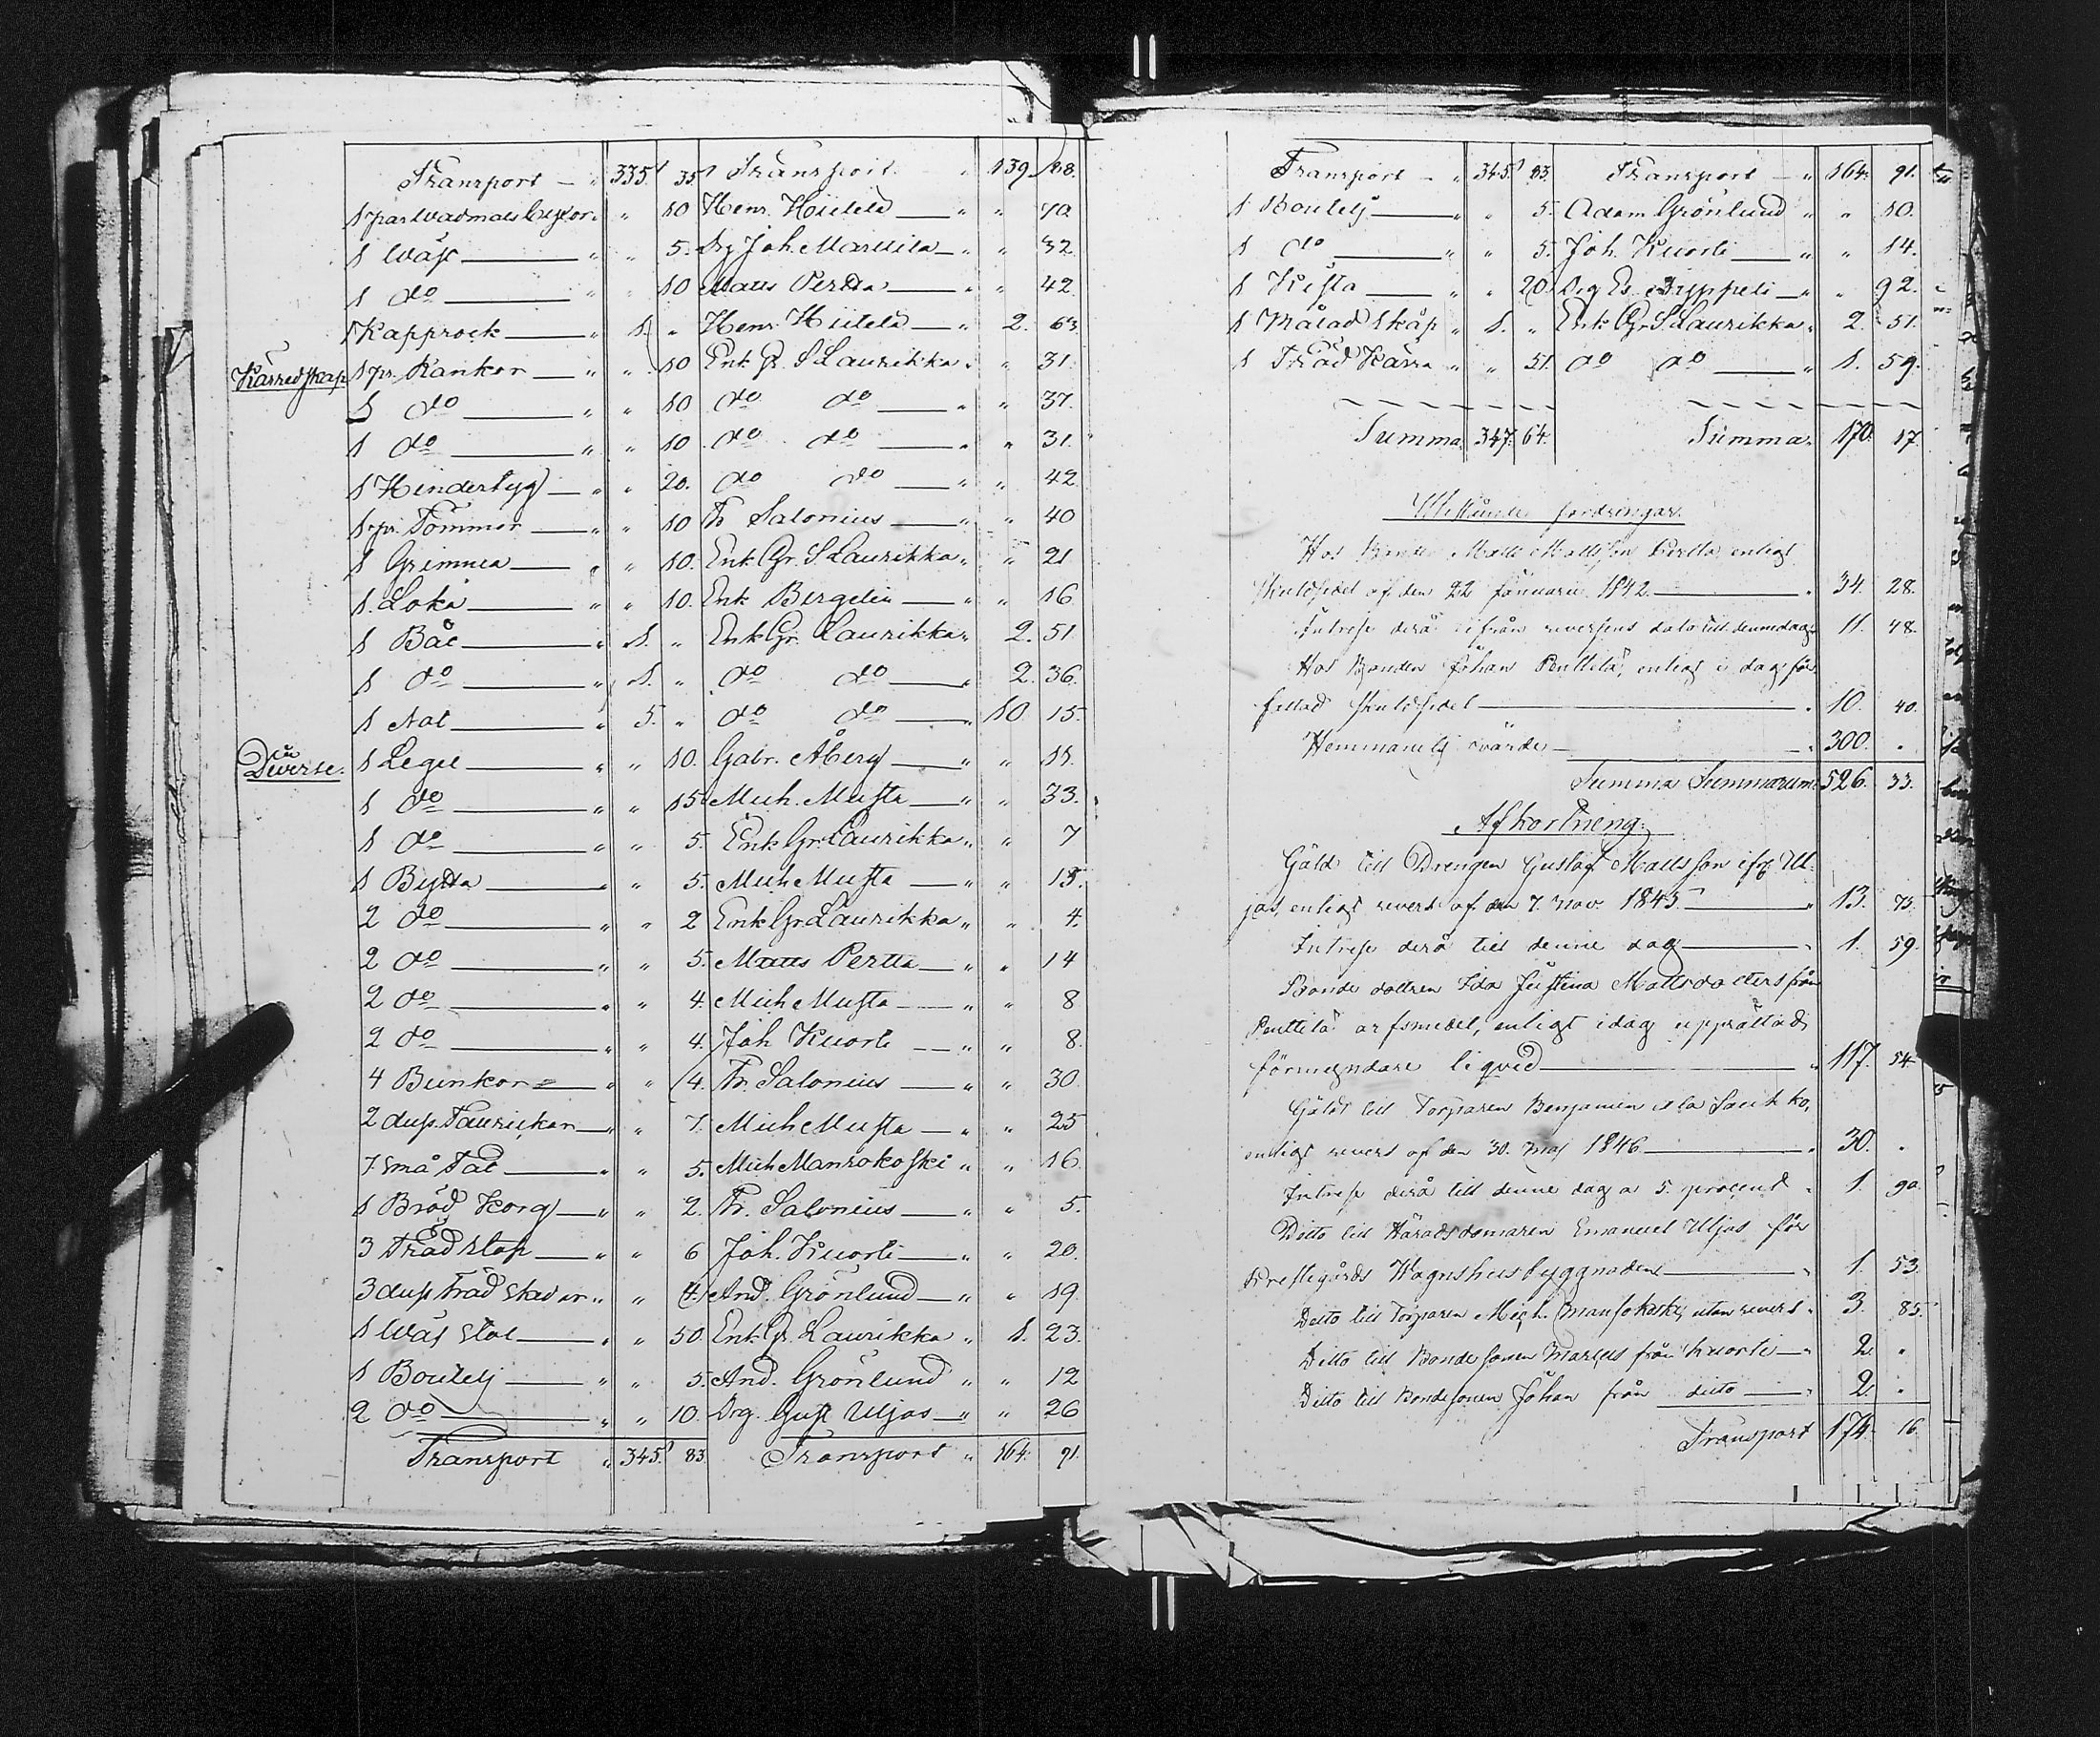 Transport — " 335. 35. Transport " 139. 88.
1 par Wadmals byxor " " 10 Henr. Hietela — " " 70.
1 Wäst — " " 5. Drg Joh. Marttila — " " 32
1 do — " " 10 Matts Perttu — " " 42
1 Kapprock — " 1. " Henr. Hietela — " 2. 63
Körredskap. 1 pr. Rankor — " " 10 Enk. Gr. S Laurikka " " 31.
1 do — " " 10 do do — " " 37.
1 do — " " 10 do do — " " 31.
1 Hindertyg — " " 20. do do — " " 42
1 pr. Tömmar — " " 10 Fr Salonius — " " 40
1 Grimma — " " 10. Enk. Gr. S Laurikka " " 21
1 Loka — " " 10. Enk Bergelin — " " 16
1 Båt — " 1. " Enk Gr. Laurikka " 2. 51
1 do — " 1. " do do — " 2. 36.
1 Not — " 5. " do do — " 10. 15.
Diverse. 1 Legel — " " 10. Gabr. Åberg — " " 11.
1 do — " " 15 Mich. Musta — " " 33.
1 do — " " 5. Enk Gr. Laurikka " " 7
1 Bytta — " " 5. Mich Musta — " " 15.
2 do — " " 2 Enk Gr. Laurikka " " 4.
2 do — " " 5. Matts Perttu — " " 14
2 do — " " 4. Mich Musta — " " 8
2 do — " " 4. Joh Kuorti — " " 8.
4 Bunkor — " " 4. Fr. Salonius — " " 30.
2 duss. Taurickar — " " 7. Mich Musta — " " 25
7 små Fat — " " 5. Mich Mansokoski " " 16.
1 Bröd Korg — " " 2. Fr. Salonius — " " 5.
3 Träd stop — " " 6 Joh. Kuorti — " " 20.
3 duss Träd Skedar " " 4. And. Grönlund — " " 19
1 Wäf Stol — " " 50. Enk. Gr. Laurikka " 1. 23.
1 Boutelj — " " 5. And. Grönlund " " 12
2 do — " " 10. Drg. Gust Uljas — " " 26
Transport " 345. 83. Transport " 164. 91.
Transport — " 345. 83. Transport — " 164. 91.
1 Boutelj — " " 5. Adam Grönlund " " 10.
1 do — " " 5. Joh. Kuorti — " " 14.
1 Kista — " " 20. Drg Es. — " " 92.
1 Målad Skåp " 1. " Enk Gr. S Laurikka " 2. 51.
1 Träd Kärra " " 51. do do — " 1. 59.
Summa 347. 64. Summa 170. 17
Utestående fordringar.
Hos Bonden Matts Mattsson Perttu, enligt
Skuldsedel af den 22 Januarii 1842 — " 34. 28.
Intresse derå ifrån reversens dato till denne dag " 11. 48.
Hos Bonden Johan Penttilä, enligt i dag för-
fattad skuldsedel — " 10. 40.
Hemmanets värde — " 300. "
Summa Summarum 526. 33.
Afkortning.
Gäld till Drengen Gustaf Mattsson ifr. Ul-
jas, enligt revers af den 7. Nov. 1845 — " 13. 73.
Intresse derå till denne dag — " 1. 59.
Bonde dottren Ida Justina Mattsdotters från
Penttilä arfsmedel, enligt idag upprättad
förmyndare liqvid — " 117. 54.
Gäld till Torparen Benjamin Ala Saukko,
enligt revers af den 30. Maj 1846 — " 30. "
Intresse derå till denne dag a 5. procent " 1. 90.
Ditto till Häradsdomaren Emanuel Uljas för
Prestegårds Wagnshusbyggnaden — " 1. 53.
Ditto till Torparen Mich. Mansokoski, utan revers " 3. 85.
Ditto till Bondesonen Markus från Kuorti — " 2. "
Ditto till Bondesonen Johan från ditto — " 2. "
Transport 174. 16.